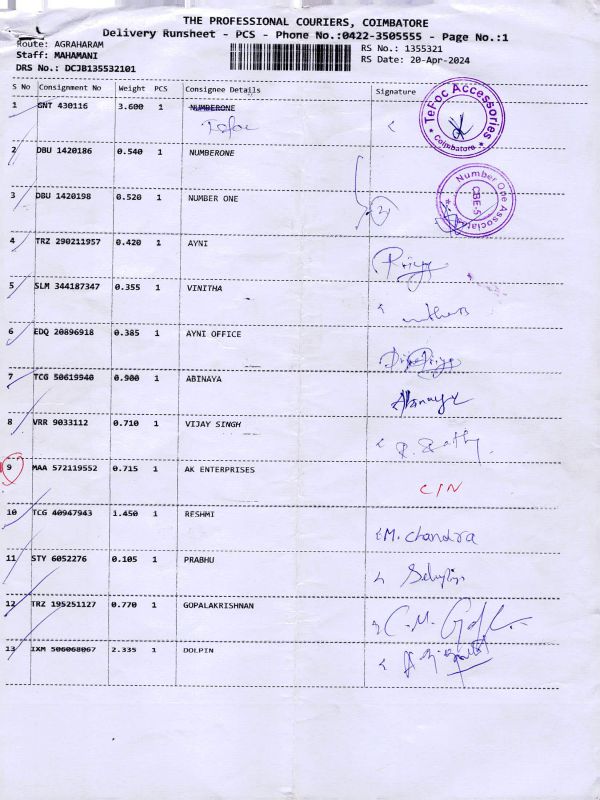 THE PROFESSIONAL COURIERS, COIMBATORE
Delivery Runsheet - PCS - Phone No.:0422-3505555 - Page No.:1
Route: AGRAHARAM
Staff: MAHAMANI
DRS No.: DCJB135532101
RS No.: 1355321
RS Date: 20-Apr-2024
S No Consignment No Weight PCS Consignee Details Signature
1 GNT 430116 3.600 1 NUMBERONE
Tefoc
TeFoc Accessories
Coimbatore
2 DBU 1420186 0.540 1 NUMBERONE
3 DBU 1420198 0.520 1 NUMBER ONE
(2)
Number One Associat
CBE-5
4 TRZ 290211957 0.420 1 AYNI
Priya
5 SLM 344187347 0.355 1 VINITHA
6 EDQ 20896918 0.385 1 AYNI OFFICE
7 TCG 50619940 0.900 1 ABINAYA
Abinaya
8 VRR 9033112 0.710 1 VIJAY SINGH
9 MAA 572119552 0.715 1 AK ENTERPRISES
C/N
10 TCG 40947943 1.450 1 RESHMI
M. Chandra
11 STY 6052276 0.105 1 PRABHU
12 TRZ 195251127 0.770 1 GOPALAKRISHNAN
13 IXM 506068067 2.335 1 DOLPIN